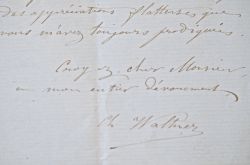 des appréciations flatteuses que
vous m'avez toujours prodiguées.
Croyez, cher Monsieur
en mon entier dévouement
Ch